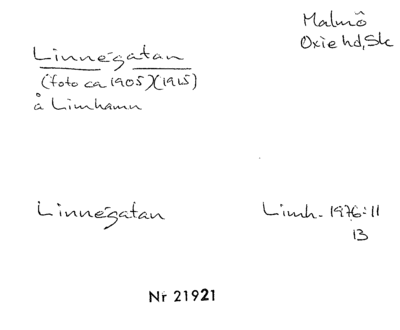 Malmö
Oxie hd, Sk
Linnégatan
(foto ca 1905)(1915)
å Limhamn
Linnégatan
Limh. 1976:11
13
Nr 21921